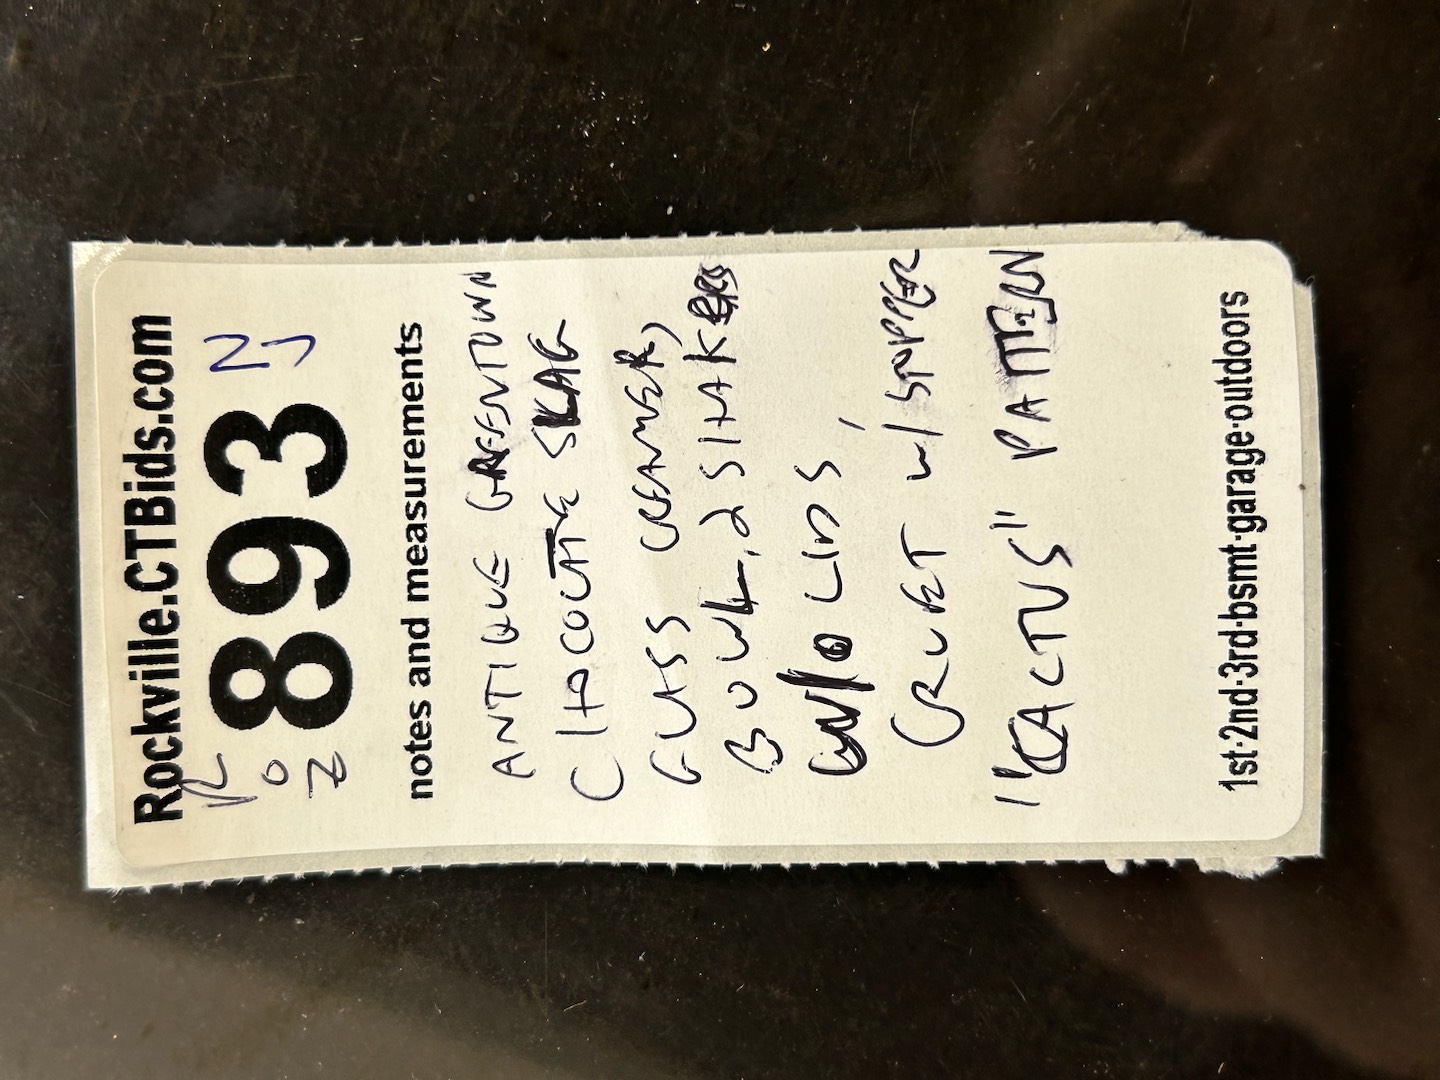 Rockville.CTBids.com
893
notes and measurements
ANTIQUE GREENTOWN
CHOCOLATE SLAG
GLASS CREAMER,
BOWL, 2 SHAKERS
W/O LIDS,
CRUET W/STOPPER
"CACTUS" PATTERN
1st·2nd·3rd·bsmt·garage·outdoors